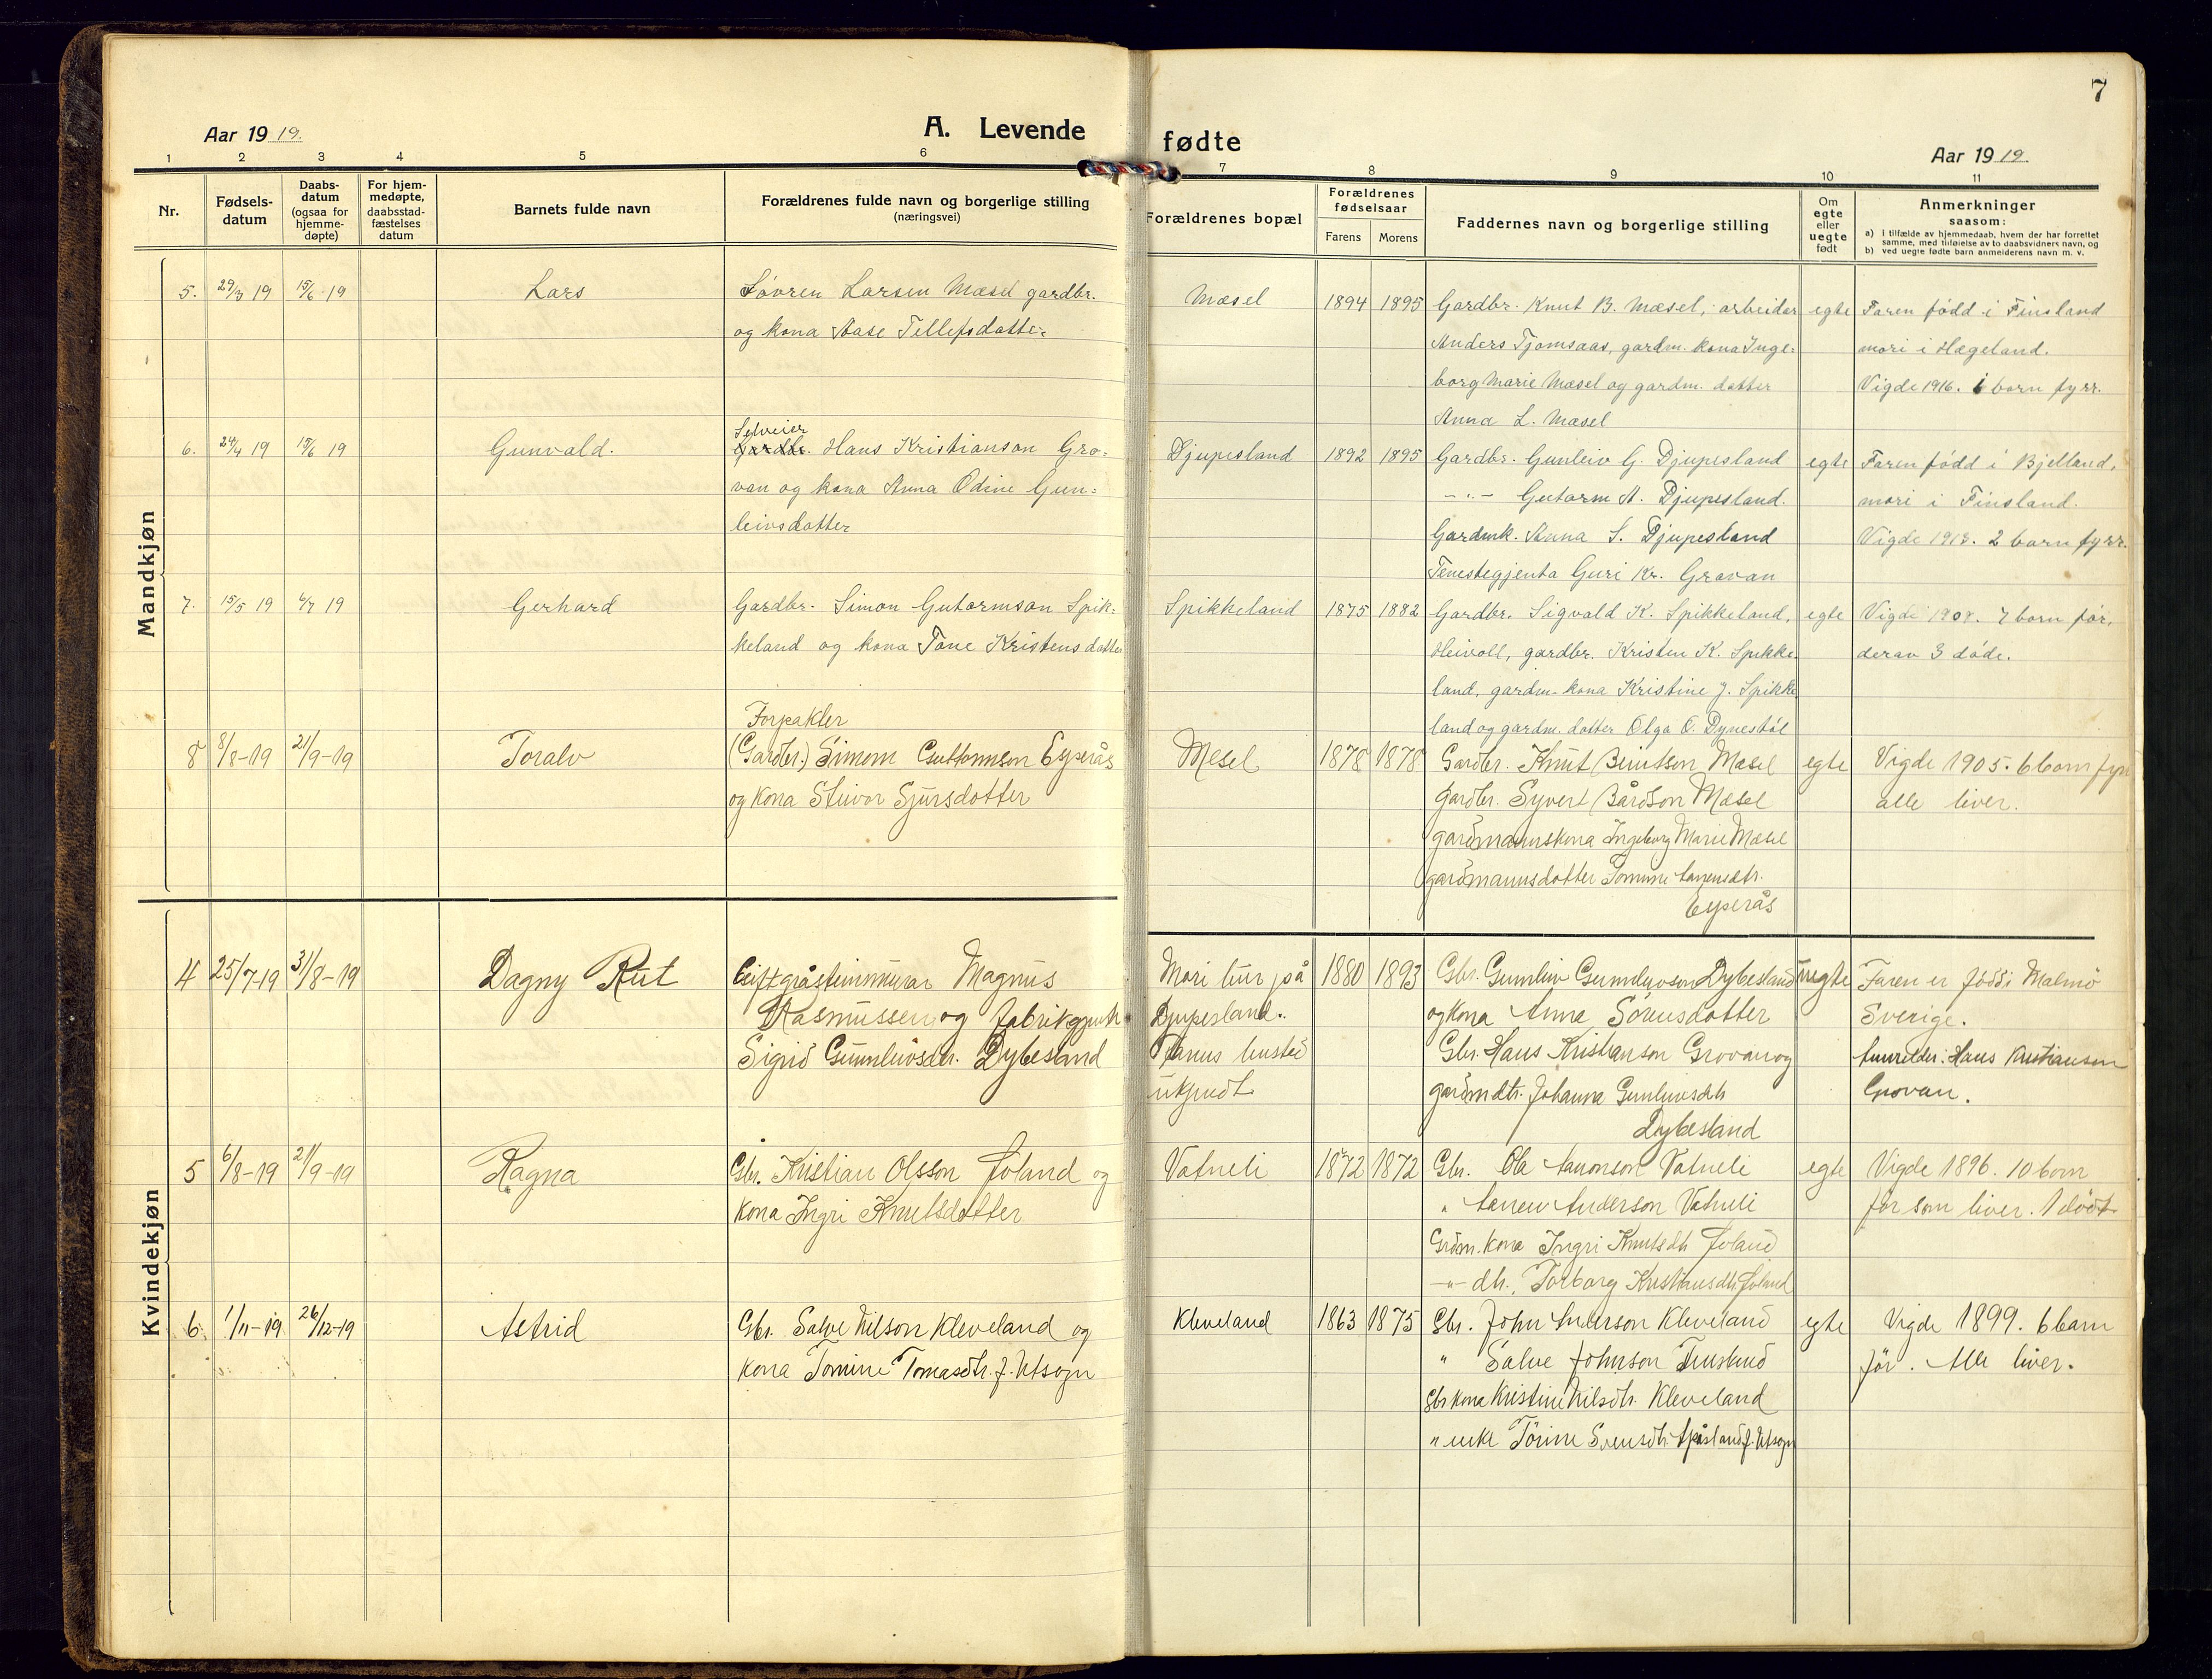 7
Aar 1919.
A. Levende
fødte
Aar 1919.
1 2 3 4 5 6 7 8 9 10 11
Nr.
Fødsels-
datum
Daabs-
datum
(ogsaa for
hjemme-
døpte)
For hjem-
medøpte,
daabsstad-
fæstelses
datum
Barnets fulde navn
Forældrenes fulde navn og borgerlige stilling
(næringsvei)
Forældrenes bopæl
Forældrenes
fødselsaar
Farens Morens
Faddernes navn og borgerlige stilling
Om
egte
eller
uegte
født
Anmerkninger
saasom:
a) I tilfælde av hjemmedaab, hvem der har forrettet
samme, med tilføielse av to daabsvidners navn, og
b) ved uegte fødte barn anmelderens navn m. v.
Mandkjøn
5. 29/3 19 15/6 19 Lars
Søvren Larsen Mæsel gardbr.
og kona Aase Tellefsdatter
Mæsel 1894 1895
Gardbr. Knut B. Mæsel, arbeidar
Anders Tjomsaas, gardm. kona Inge-
borg Marie Mæsel og gardm. datter
Anna L. Mæsel
egte
Faren født i Finsland
mori i Hægeland.
Vigde 1916. 1 born fyrr.
6. 24/4 19 15/6 19 Gunvald.
Selveier
Gardbr. Hans Kristianson Gro-
van og kona Anna Odine Gun-
leivsdatter
Djupesland 1892 1895
Gardbr. Gunleiv G. Djupesland
-"- Gutorm A. Djupesland.
Gardmk. Anna S. Djupesland
Tenestegjenta Guri Kr. Grovan
egte
Faren fødd i Bjelland,
mori i Finsland.
Vigde 1918. 2 born fyrr.
7. 15/5 19 6/7 19 Gerhard
Gardbr. Simon Gutormson Spik-
keland og kona Tone Kristensdatter
Spikkeland 1875 1882
Gardbr. Sigvald K. Spikkeland,
Heivoll, gardbr. Kristen K. Spikke-
land, gardm. kona Kristine J. Spikke-
land og gardm. datter Olga O. Dynestøl
egte
Vigde 1908. 7 born før,
derav 3 døde.
8 8/8-19 21/9-19 Toralv
Forpakter
(Gardbr.) Simon Guttormson Eyperås
og kona Steivor Sjursdotter
Mesel 1878 1878
Gardbr. Knut Beintsen Mæsel
Gardbr. Syvert Bårdson Mæsel
gardmannskona Ingeborg Marie Mæsel
gardmannsdotter Tomine dtr.
Eyperås
egte
Vigde 1905. 6 born fyrr
alle liver.
Kvindekjøn
4 25/7-19 31/8-19 Dagny Rut
Gift gråsteinmurar Magnus
Rasmussen og fabrikgjente
Sigrid Gunnleivsdtr. Dybesland
Mori bur på
Djupesland.
Farens busted
ukjendt
1880 1893
Gbr. Gunnleiv Gunnleivson Dybesland
og kona Anna Sørensdotter
Gbr. Hans Kristianson Grovan og
gardmdtr. Johanna Gunleivsdtr
Dybesland
uegte
Faren er fødd i Malmø
Sverige.
Anmelder: Hans Kristiansen
Grovan.
5 6/8-19 21/9-19 Ragna
Gbr. Kristian Olsson Foland og
kona Ingri Knutsdotter
Vatneli 1872 1872
Gbr. Ola Aanonson Vatneli
" Aanen Anderson Vatneli
Grdm. kona Ingri Knutsdtr Foland
-"- dtr. Torborg Kristiansdtr Foland
egte
Vigde 1896. 10 born
før som liver. 1 dødt
6. 1/11-19 26/12-19 Astrid
Gbr. Salve Nilson Kleveland og
kona Tomine Tomasdtr. f. Utsogn
Kleveland 1863 1875
Gbr. John Anderson Kleveland
" Salve Johnson
Gbr kona Kristine Nilsdtr. Kleveland
" enke Tørine Svensdtr. f. Utsogn
egte
Vigde 1899. 6 barn
før. Alle liver.